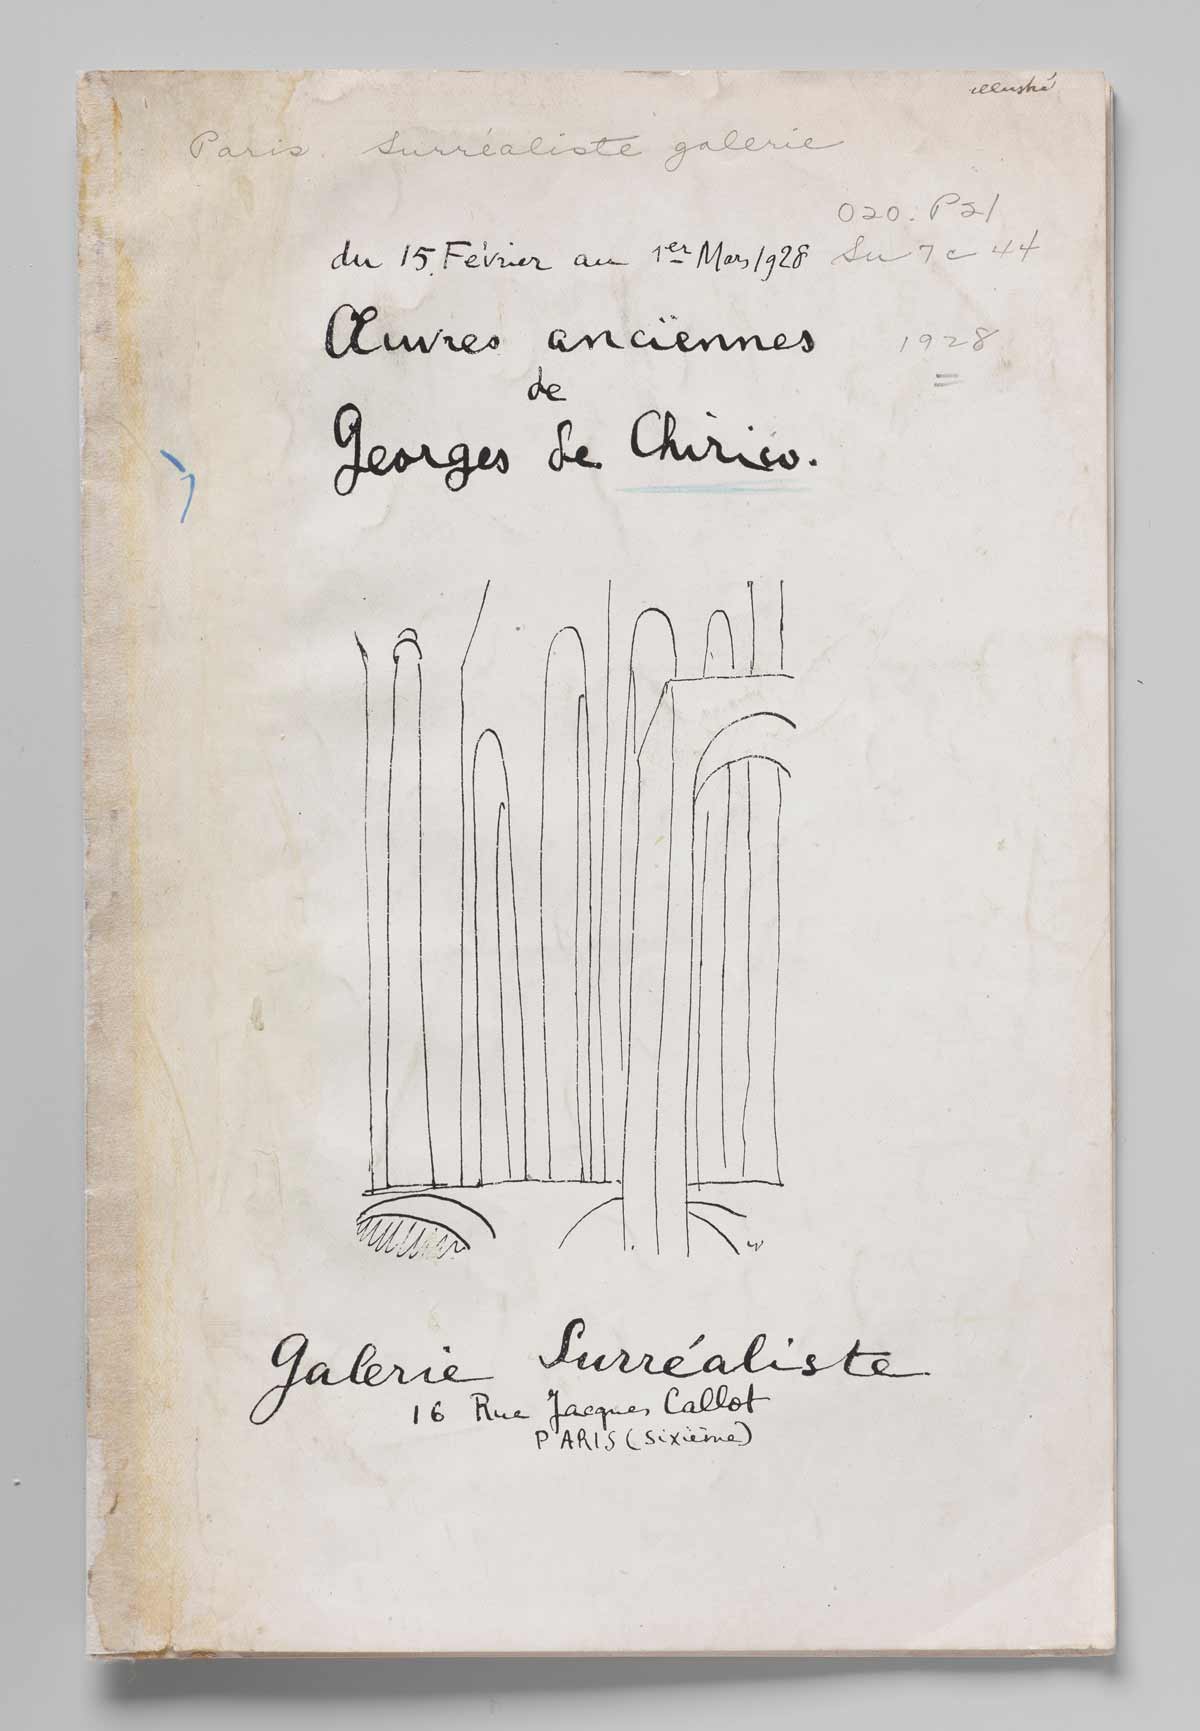 illustré
Paris. Surréaliste galerie
020. P21
du 15 Février au 1er Mars 1928 Su 7 c 44
Œuvres anciënnes 1928
de
Georges de Chirico.
Galerie Surréaliste
16 Rue Jacques Callot
PARIS (Sixième)